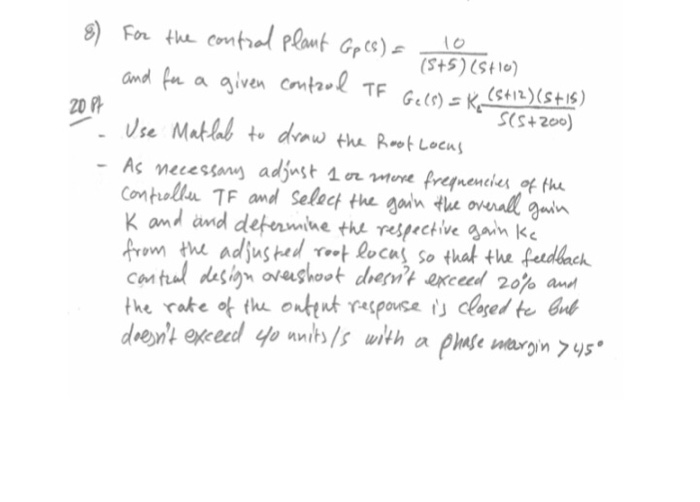 8) For the control plant Gp(s) = 10 / (S+5)(S+10)
and for a given control TF Gc(s) = Kc (S+12)(S+15) / S(S+200)
20 Pt
- Use Matlab to draw the Root Locus
- As necessary adjust 1 or more frequencies of the
Controller TF and select the gain the overall gain
K and and determine the respective gain Kc
from the adjusted root locus so that the feedback
control design overshoot doesn't exceed 20% and
the rate of the output response is closed to but
doesn't exceed 40 units/s with a phase margin > 45°